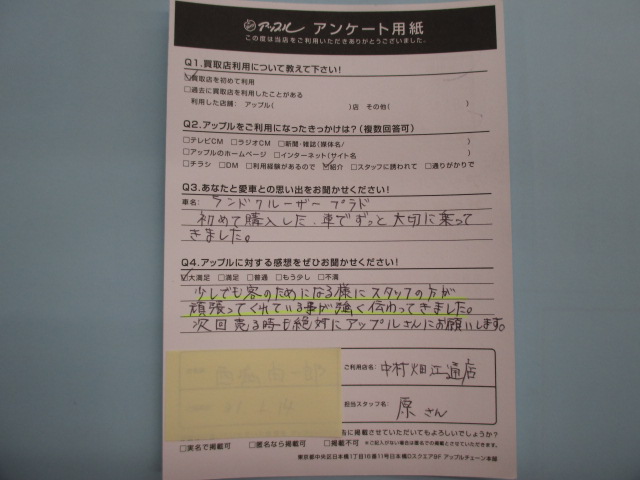 アップル アンケート用紙
この度は当店をご利用いただきありがとうございました。
Q1.買取店利用について教えて下さい!
☑買取店を初めて利用
□過去に買取店を利用したことがある
利用した店舗: アップル( )店 その他( )
Q2.アップルをご利用になったきっかけは?(複数回答可)
□テレビCM □ラジオCM □新聞・雑誌(媒体名/ )
□アップルのホームページ □インターネット(サイト名 )
□チラシ □DM □利用経験があるので ☑紹介 □スタッフに誘われて □通りがかりで
Q3.あなたと愛車との思い出をお聞かせください!
車名: ランドクルーザー プラド
初めて購入した、車でずっと大切に乗って
きました。
Q4.アップルに対する感想をぜひお聞かせください!
☑大満足 □満足 □普通 □もう少し □不満
少しでも客のためになる様にスタッフの方が
頑張ってくれている事が強く伝わってきました。
次回売る時も絶対にアップルさんにお願いします。
ご利用店名: 中村畑江通店
担当スタッフ名: 原さん
告に掲載させていただいてもよろしいでしょうか?
□実名で掲載可 □匿名なら掲載可 □掲載不可 ※ご記入がない場合は匿名での掲載とさせていただきます。
東京都中央区日本橋1丁目16番11号日本橋Dスクエア8F アップルチェーン本部